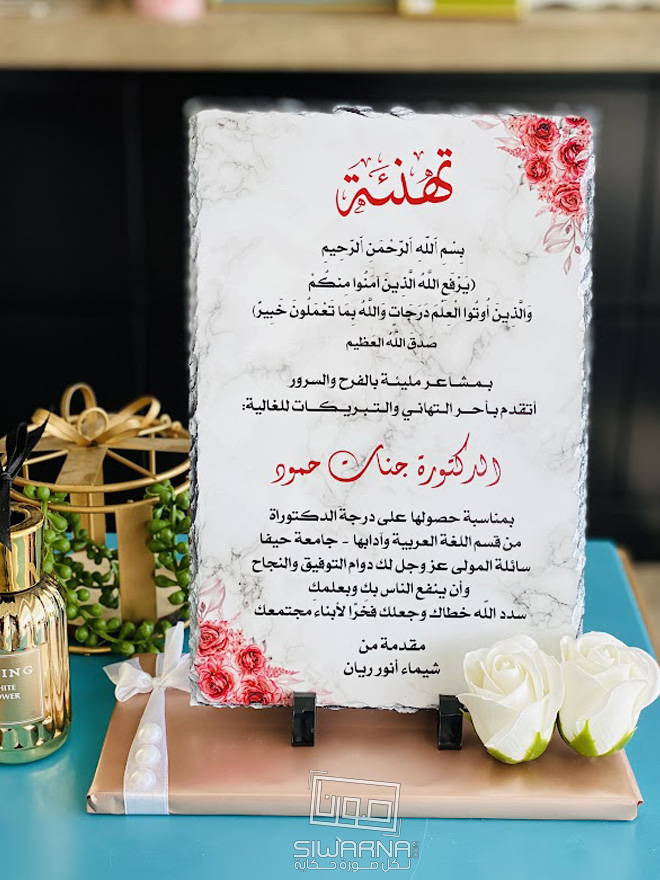 تهنئة
بِسْمِ اللَّهِ الرَّحْمَنِ الرَّحِيمِ
(يَرْفَعِ اللَّهُ الَّذِينَ آمَنُوا مِنكُمْ
وَالَّذِينَ أُوتُوا الْعِلْمَ دَرَجَاتٍ وَاللَّهُ بِمَا تَعْمَلُونَ خَبِيرٌ)
صَدَقَ اللهُ العظيم
بمشاعر مليئة بالفرح والسرور
أتقدم بأحر التهاني والتبريكات للغالية:
الدكتورة جنات حمود
بمناسبة حصولها على درجة الدكتوراة
من قسم اللغة العربية وآدابها - جامعة حيفا
سائلة المولى عز وجل لك دوام التوفيق والنجاح
وأن ينفع الناس بك وبعلمك
سدد الله خطاك وجعلك فخرًا لأبناء مجتمعك
مقدمة من
شيماء أنور ريان
ING
HITE
OWER
صورن
SIWARNA
لكل صورة حكاية